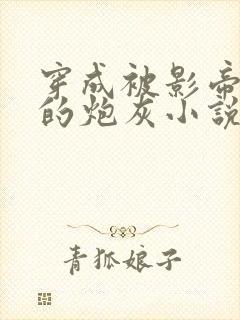 穿成被影帝
的炮灰小説
青狐娘子